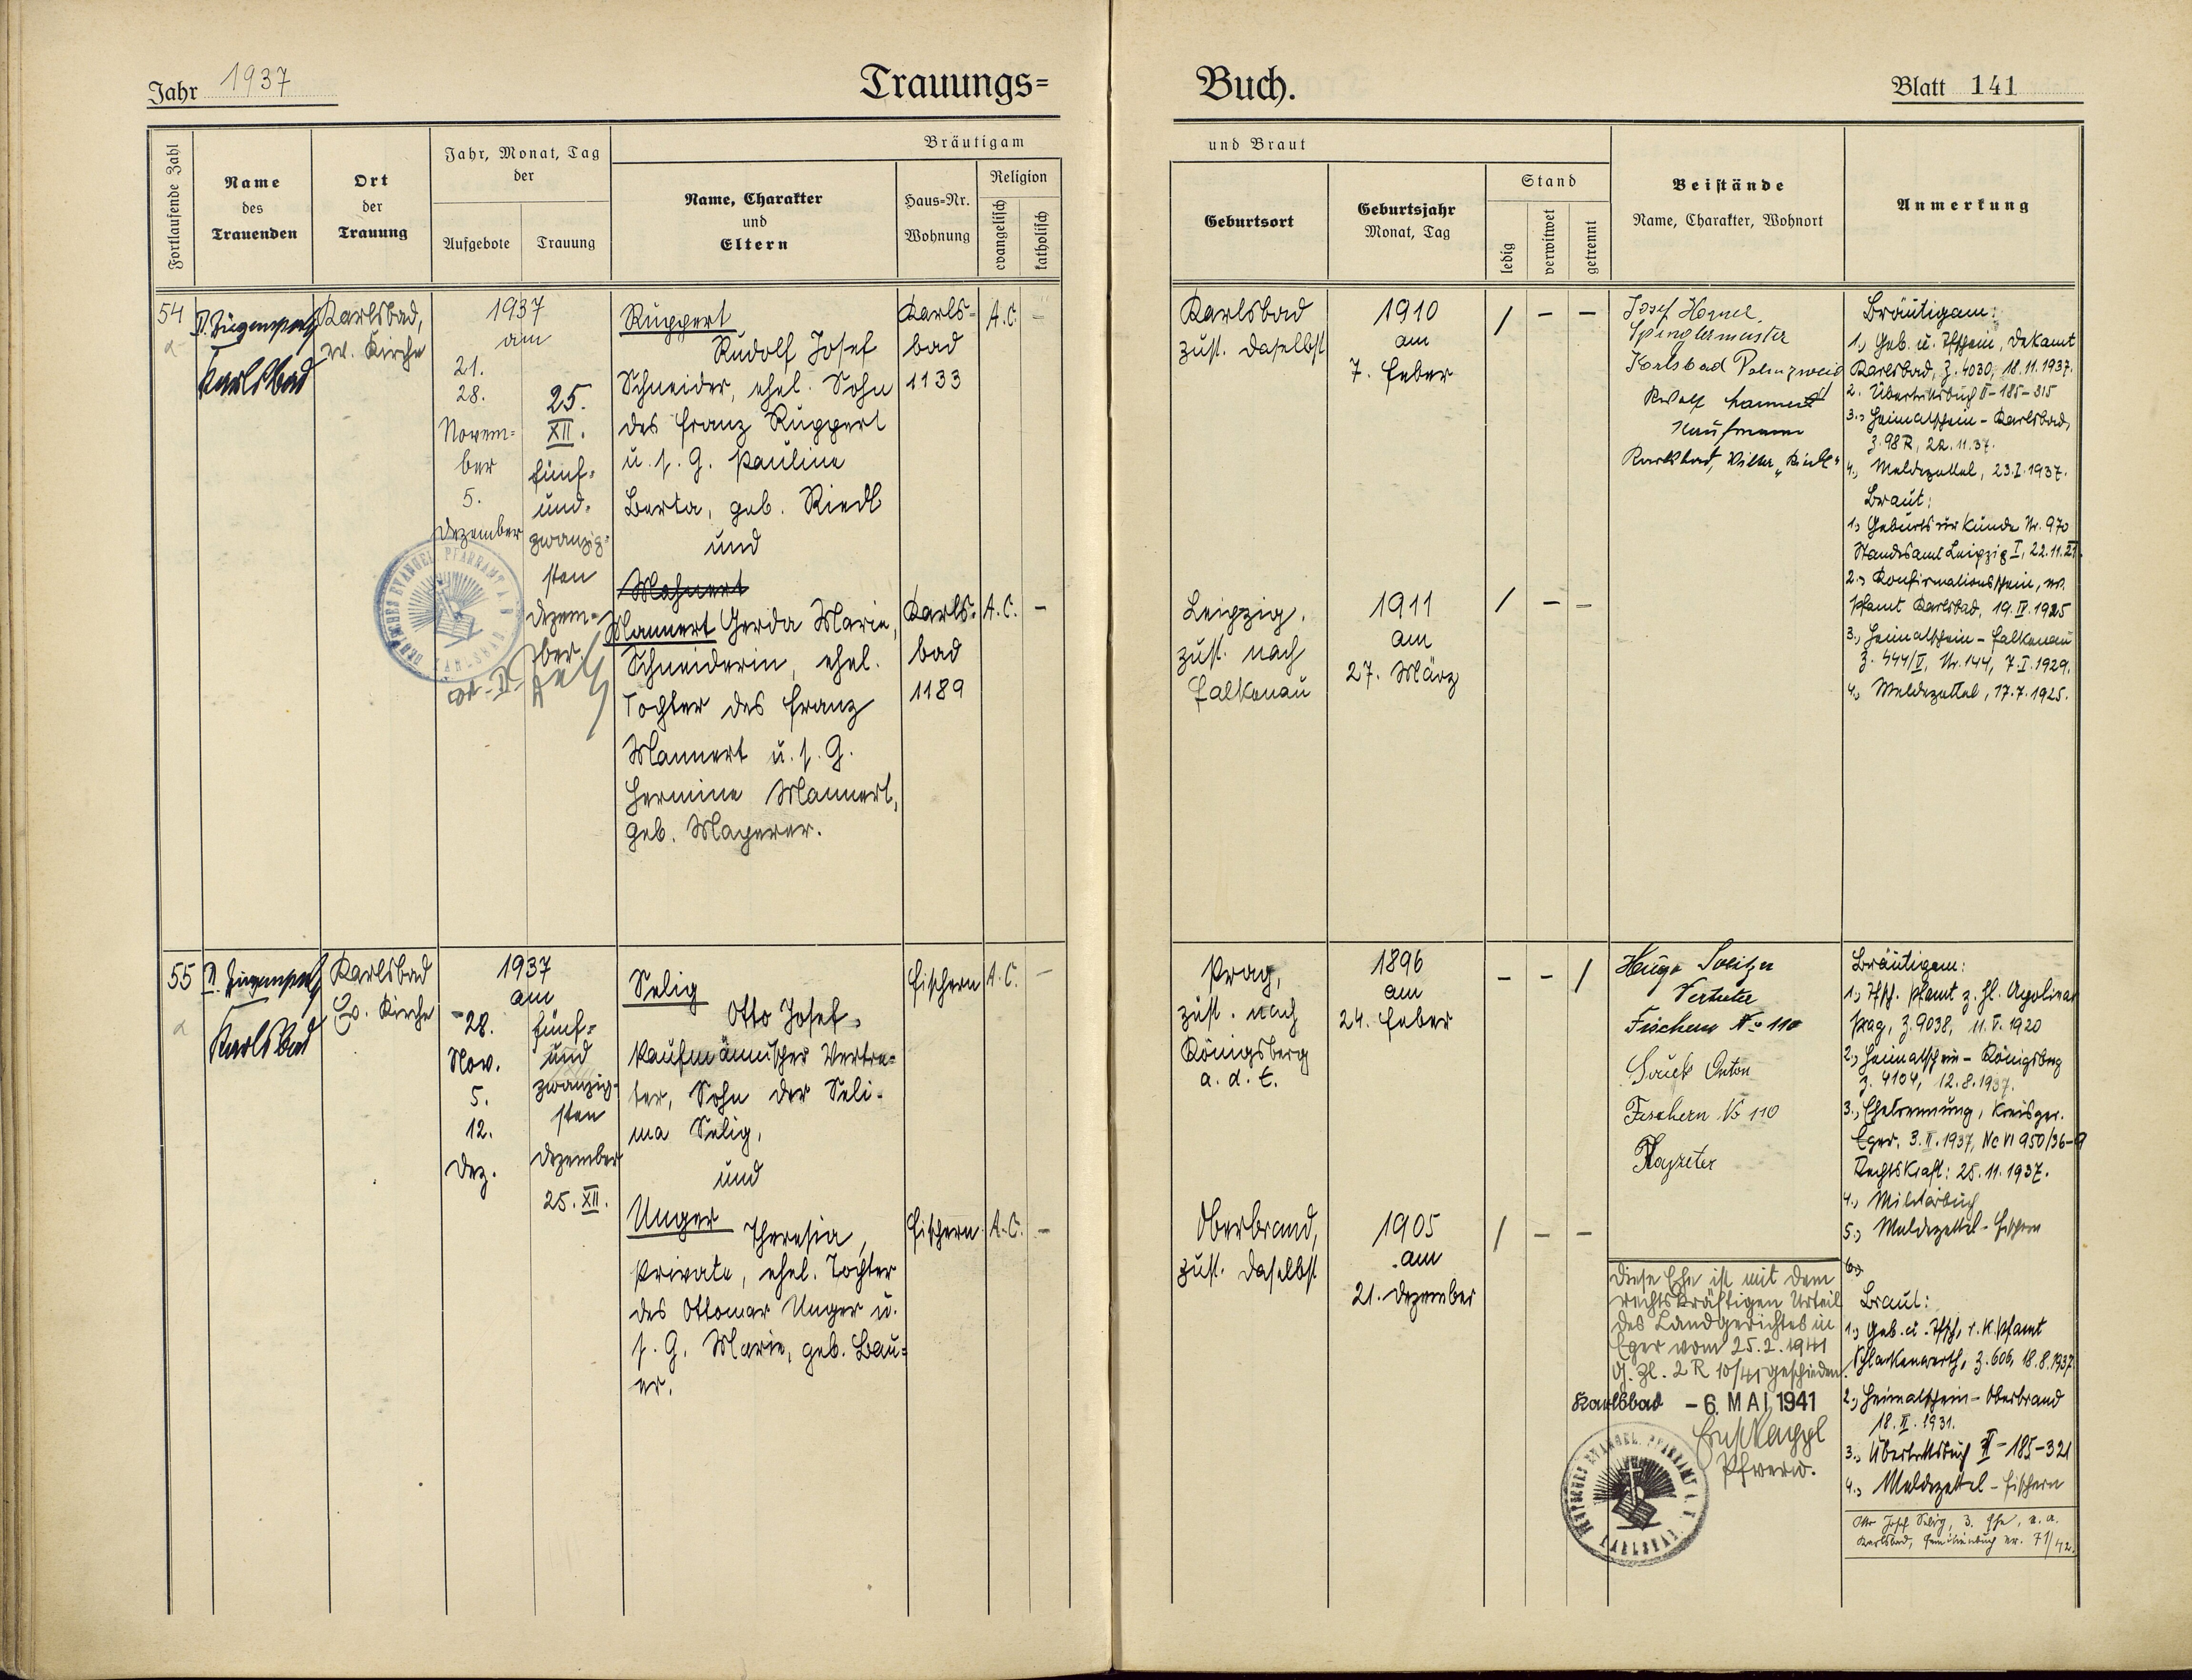 Jahr 1937
Trauungs=
Buch.
Blatt 141
Fortlaufende Zahl
Name
des
Trauenden
Ort
der
Trauung
Jahr, Monat, Tag
der
Aufgebote
Trauung
Bräutigam
Name, Charakter
und
Eltern
Haus=Nr.
Wohnung
Religion
evangelisch
katholisch
und Braut
Geburtsort
Geburtsjahr
Monat, Tag
Stand
ledig
verwitwet
getrennt
Beistände
Name, Charakter, Wohnort
Anmerkung
54
Karlsbad
Karlsbad,
ev. Kirche
1937
am
21.
28.
Novem=
ber
5.
Dezember
25.
XII.
fünf=
und=
zwanzig=
sten
Dezem=
ber
Ruppert
Rudolf Josef
Schneider, ehel. Sohn
des Franz Ruppert
u. s. G. Pauline
Berta, geb. Riedl
und
Mannert Gerda Marie,
Schneiderin, ehel.
Tochter des Franz
Mannert u. s. G.
Hermine Mannert,
geb. Mayerer.
Karls=
bad
1133
A.C.
–
Karls=
bad
1189
A.C.
–
Karlsbad
zust. daselbst
1910
am
7. Feber
/ – –
Leipzig,
zust. nach
Falkenau
1911
am
27. März
/ – –
Josef
Spenglermeister
Karlsbad
Kaufmann
Karlsbad,
Bräutigam:
1., Geb. u. Tfschein, Dekamt
Karlsbad, Z. 4030, 18.11.1937.
2. Übertrittsbuch II-185-315
3., Heimatschein - Karlsbad,
Z. 98R, 22.11.37.
4., Meldezettel, 23.I.1937.
Braut:
1., Geburtsurkunde Nr. 970
Standesamt Leipzig I, 22.11.21.
2., Konfirmationsschein, ev.
Pfamt Karlsbad, 19.IV.1925
3., Heimatschein - Falkenau
Z. 444/V, Nr. 144, 7.I.1929.
4., Meldezettel, 17.7.1925.
DEUTSCHES EVANGEL. PFARRAMT A. B. KARLSBAD
55
Karlsbad
Karlsbad
Ev. Kirche
1937
am
28.
Nov.
5.
12.
Dez.
fünf=
und
zwanzig=
sten
Dezember
25. XII.
Selig
Otto Josef,
kaufmännischer Vertre=
ter, Sohn der Seli=
ma Selig,
und
Unger Theresia,
Private, ehel. Tochter
des Ottomar Unger u.
s. G. Marie, geb. Bau=
er.
Fischern
A.C.
–
Fischern
A.C.
–
Prag,
zust. nach
Königsberg
a. d. E.
1896
am
24. Feber
– – /
Oberbrand,
zust. daselbst
1905
am
21. Dezember
/ – –
Hugo
Vertreter
Fischern No 110
Anton
Fischern No 110
Diese Ehe ist mit dem
rechtskräftigen Urteil
des Landgerichtes in
Eger vom 25.2.1941
G. Zl. 2 R 10/41 geschieden.
Karlsbad – 6. MAI 1941
Pfverw.
DEUTSCHES EVANGEL. PFARRAMT A. B. KARLSBAD
Bräutigam:
1., Tfsch. Pfamt z. hl. Apolinar
Prag, Z. 9038, 11.V.1920
2., Heimatschein - Königsberg
Z. 4104, 12.8.1937.
3., Ehetrennung, Kreisger.
Eger, 3.II.1937, Nc VI 950/36-9
Rechtskraft: 25.11.1937.
4., Militärbuch
5., Meldezettel - Fischern
6.,
Braut:
1., Geb. u. Tfsch, r. k. Pfamt
Schlackenwerth, Z. 606, 18.8.1937
2., Heimatschein - Oberbrand
18.II.1931.
3., Übertrittsbuch II-185-321
4., Meldezettel - Fischern
Otto Josef Selig, 3. Ehe,
Karlsbad, Familienbuch Nr. 71/42.